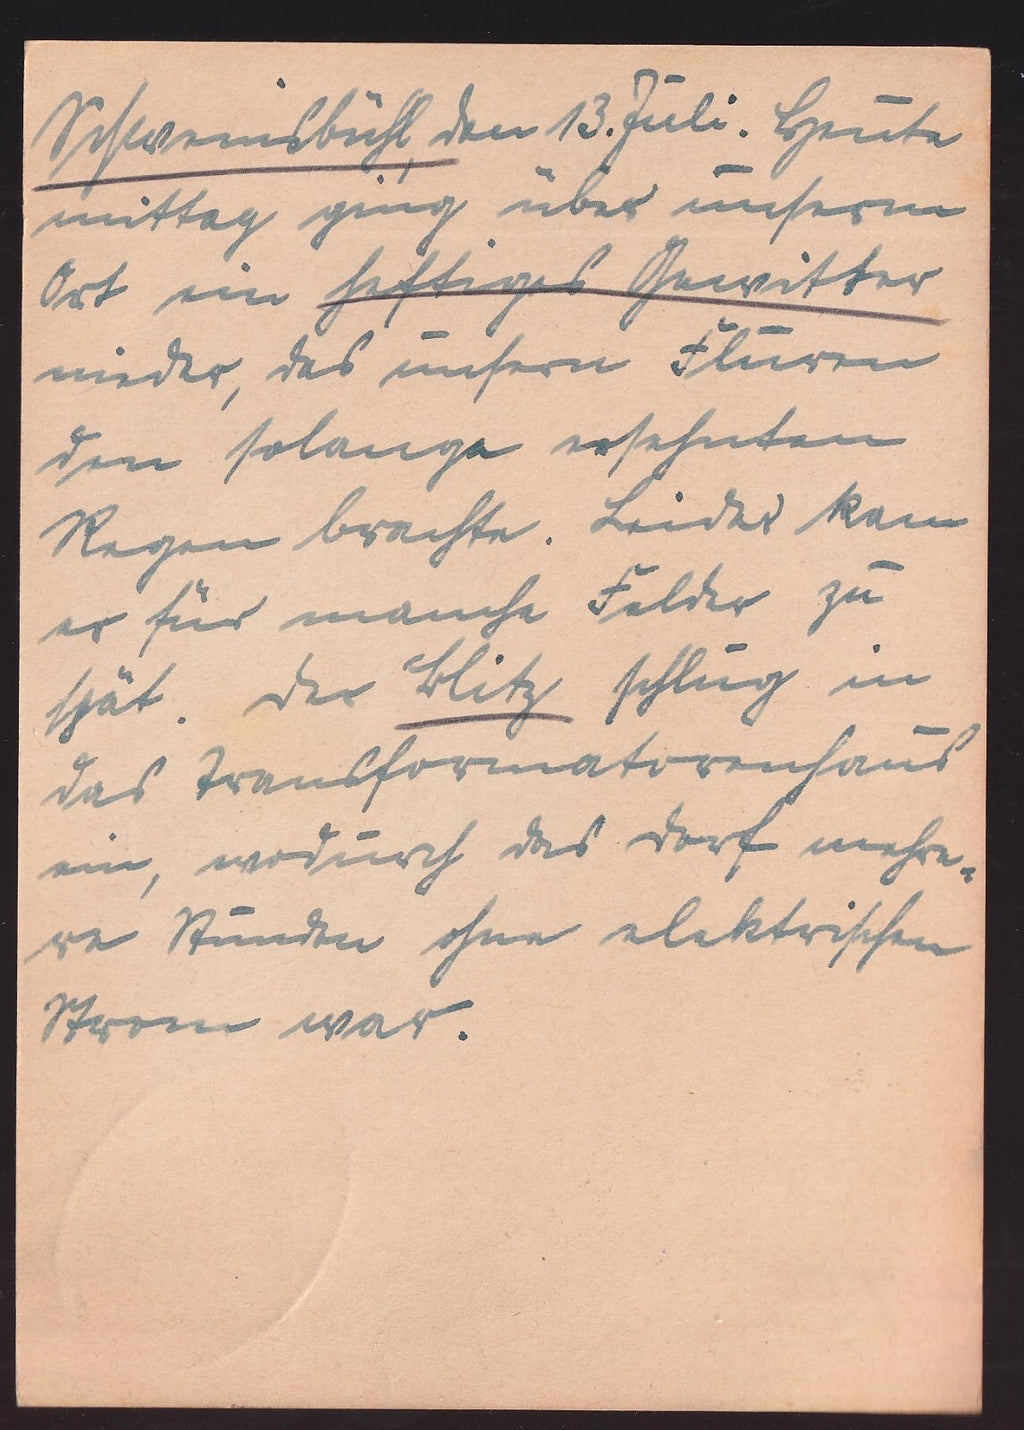 Schweinsbühl, den 13. Juli. Heute
mittag ging über unserm
Ort ein heftiges Gewitter
nieder, das unsern Fluren
den solange ersehnten
Regen brachte. Leider kam
er für manche Felder zu
spät. Der Blitz schlug in
das Transformatorenhaus
ein, wodurch das Dorf mehre-
re Stunden ohne elektrischen
Strom war.